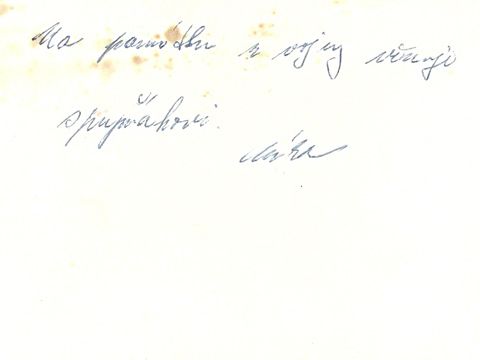 Na památku z vojny věnuji
spujmákovi.